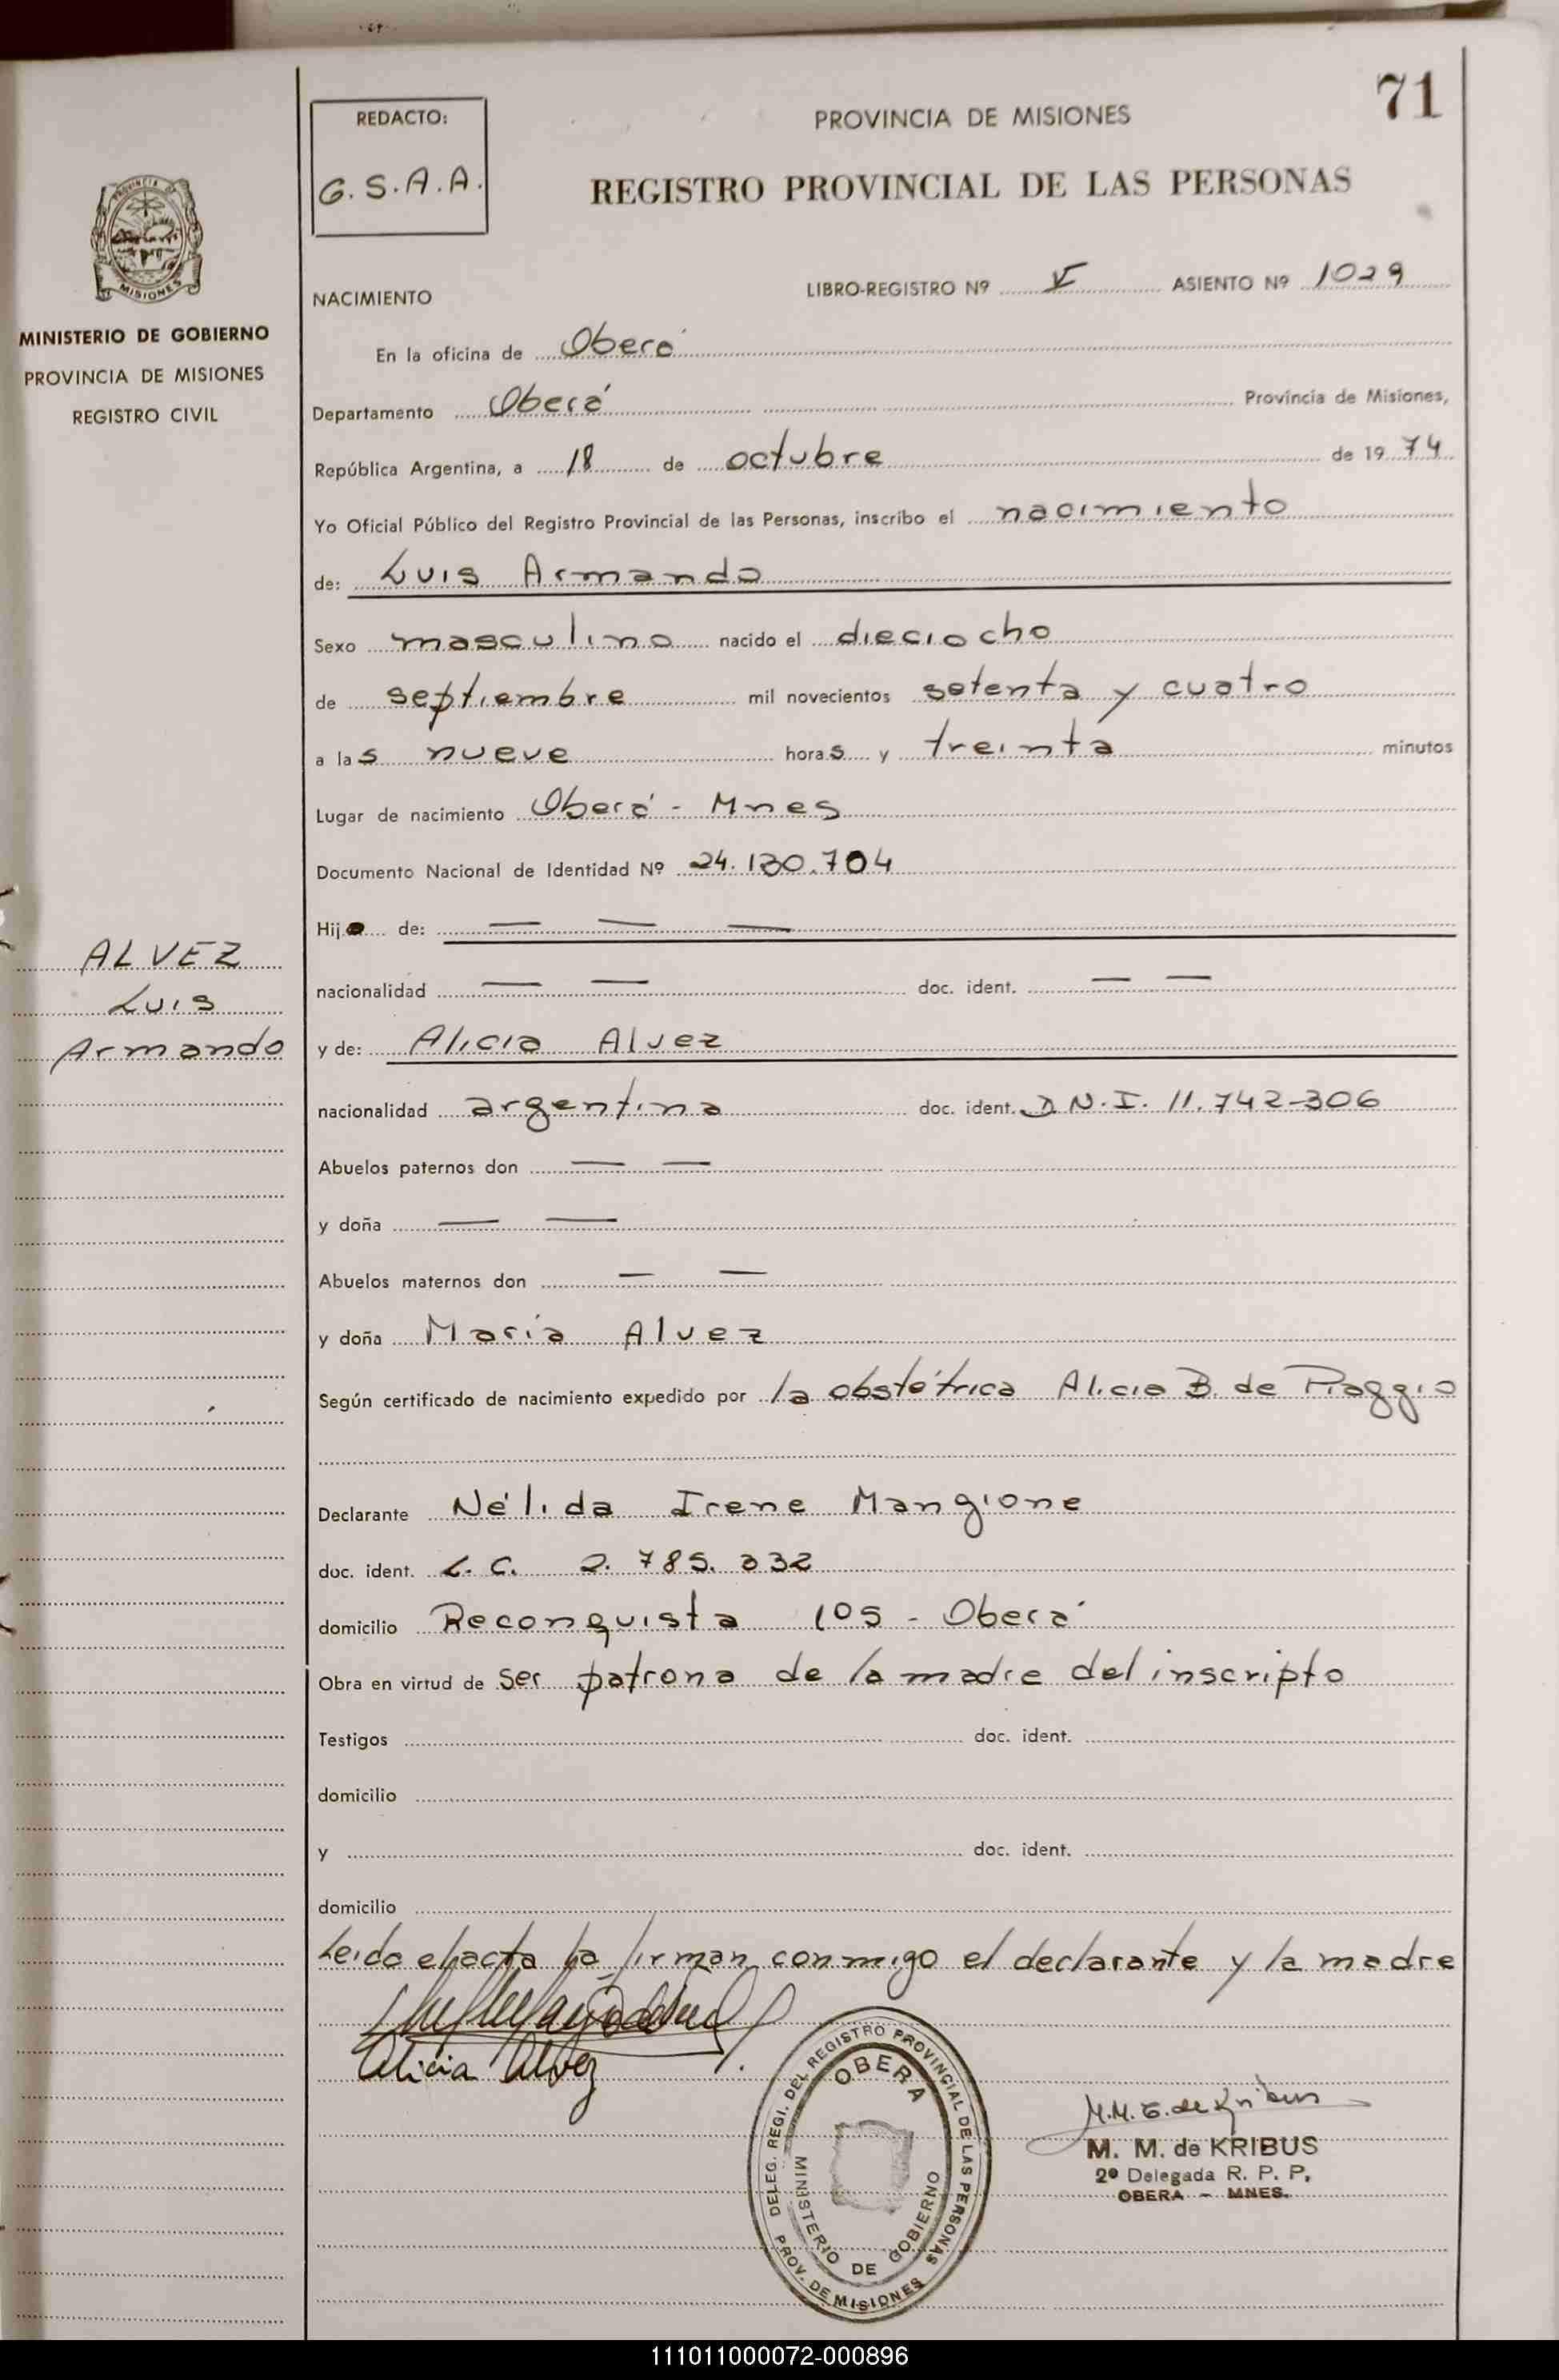 71
REDACTO:
G.S.A.A.
PROVINCIA DE MISIONES
REGISTRO PROVINCIAL DE LAS PERSONAS
PROVINCIA DE
MISIONES
MINISTERIO DE GOBIERNO
PROVINCIA DE MISIONES
REGISTRO CIVIL
NACIMIENTO LIBRO-REGISTRO Nº V ASIENTO Nº 1029
En la oficina de Oberá
Departamento Oberá Provincia de Misiones,
República Argentina, a 18 de octubre de 1974
Yo Oficial Público del Registro Provincial de las Personas, inscribo el nacimiento
de: Luis Armando
Sexo masculino nacido el dieciocho
de septiembre mil novecientos setenta y cuatro
a las nueve horas y treinta minutos
Lugar de nacimiento Oberá - Mnes
Documento Nacional de Identidad Nº 24.130.704
Hijo de: — — —
nacionalidad — — doc. ident. — —
ALVEZ
Luis
Armando
y de: Alicia Alvez
nacionalidad argentina doc. ident. D.N.I. 11.742-306
Abuelos paternos don — —
y doña — —
Abuelos maternos don — —
y doña María Alvez
Según certificado de nacimiento expedido por la obstétrica Alicia B. de Piaggio
Declarante Nélida Irene Mangione
doc. ident. L.C. 2.785.332
domicilio Reconquista 105 - Oberá
Obra en virtud de ser patrona de la madre del inscripto
Testigos doc. ident.
domicilio
y doc. ident.
domicilio
Leida el acta la firman conmigo el declarante y la madre
Alicia Alvez
DELEG. REGI. DEL REGISTRO PROVINCIAL DE LAS PERSONAS
OBERA
MINISTERIO DE GOBIERNO
PROV. DE MISIONES
M.M.E. de Kribus
M. M. de KRIBUS
2º Delegada R. P. P.
OBERA - MNES.
111011000072-000896